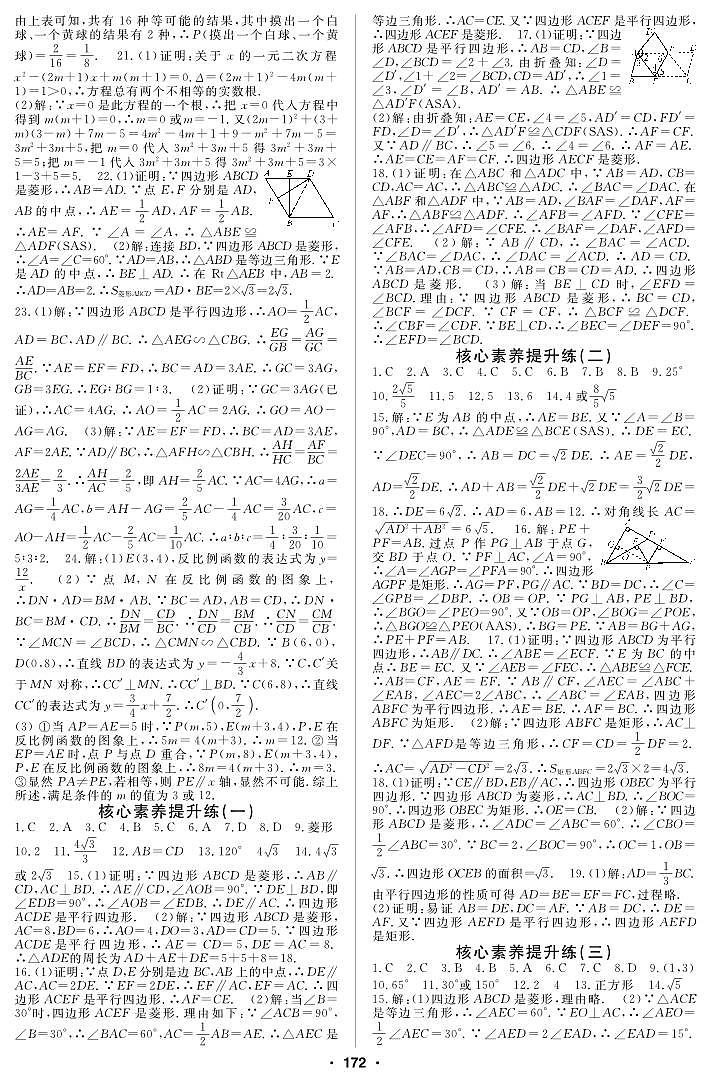 由上表可知,共有 16 种等可能的结果,其中摸出一个白
球、一个黄球的结果有 2 种,∴P(摸出一个白球、一个黄
球)=2/16=1/8. 21.(1)证明:关于 x 的一元二次方程
x²-(2m+1)x+m(m+1)=0. Δ=(2m+1)²-4m(m+
1)=1>0,∴方程总有两个不相等的实数根.
(2)解:∵x=0 是此方程的一个根,∴把 x=0 代入方程中
得到 m(m+1)=0,∴m=0 或 m=-1. 又(2m-1)²+(3+
m)(3-m)+7m-5=4m²-4m+1+9-m²+7m-5=
3m²+3m+5,把 m=0 代入 3m²+3m+5 得 3m²+3m+
5=5;把 m=-1 代入 3m²+3m+5 得 3m²+3m+5=3×
1-3+5=5. 22.(1)证明:∵四边形 ABCD
是菱形,∴AB=AD. ∵点 E,F 分别是 AD,
AB 的中点,∴AE=1/2AD,AF=1/2AB.
∴AE=AF. ∵∠A=∠A,∴△ABE≌
△ADF(SAS). (2)解:连接 BD,∵四边形 ABCD 是菱形,
∴∠A=∠C=60°. ∵AD=AB,∴△ABD 是等边三角形. ∵E
是 AD 的中点,∴BE⊥AD. ∴在 Rt△AEB 中,AB=2.
∴AD=AB=2. ∴S菱形ABCD=AD·BE=2×√3=2√3.
23.(1)解:∵四边形 ABCD 是平行四边形,∴AO=1/2AC,
AD=BC,AD∥BC. ∴△AEG∽△CBG. ∴EG/GB=AG/GC=
AE/BC. ∵AE=EF=FD,∴BC=AD=3AE. ∴GC=3AG,
GB=3EG. ∴EG:BG=1:3. (2)证明:∵GC=3AG(已
证),∴AC=4AG. ∴AO=1/2AC=2AG. ∴GO=AO-
AG=AG. (3)解:∵AE=EF=FD,∴BC=AD=3AE,
AF=2AE. ∵AD∥BC,∴△AFH∽△CBH. ∴AH/HC=AF/BC=
2AE/3AE=2/3. ∴AH/AC=2/5,即 AH=2/5AC. ∵AC=4AG,∴a=
AG=1/4AC,b=AH-AG=2/5AC-1/4AC=3/20AC,c=
AO-AH=1/2AC-2/5AC=1/10AC. ∴a:b:c=1/4:3/20:1/10=
5:3:2. 24.解:(1)E(3,4),反比例函数的表达式为 y=
12/x. (2)∵点 M,N 在反比例函数的图象上,
∴DN·AD=BM·AB. ∵BC=AD,AB=CD,∴DN·
BC=BM·CD. ∴DN/BM=CD/BC. ∴DN/CD=BM/CB. ∴CN/CD=CM/CB.
∵∠MCN=∠BCD,∴△CMN∽△CBD. ∵B(6,0),
D(0,8),∴直线 BD 的表达式为 y=-4/3x+8. ∵C,C′关
于 MN 对称,∴CC′⊥MN. ∴CC′⊥BD. ∵C(6,8),∴直线
CC′的表达式为 y=3/4x+7/2. ∴C′(0,7/2).
(3)①当 AP=AE=5 时,∵P(m,5),E(m+3,4),P,E 在
反比例函数的图象上,∴5m=4(m+3). ∴m=12. ②当
EP=AE 时,点 P 与点 D 重合,∵P(m,8),E(m+3,4),
P,E 在反比例函数的图象上,∴8m=4(m+3). ∴m=3.
③显然 PA≠PE,若相等,则 PE∥x 轴,显然不可能. 综上
所述,满足条件的 m 的值为 3 或 12.
核心素养提升练(一)
1.C 2.A 3.C 4.B 5.C 6.A 7.D 8.D 9.菱形
10.2 11.4√3/3 12.AB=CD 13.120° 4√3 14.4√3
或 2√3 15.(1)证明:∵四边形 ABCD 是菱形,∴AB∥
CD,AC⊥BD. ∴AE∥CD,∠AOB=90°. ∵DE⊥BD,即
∠EDB=90°,∴∠AOB=∠EDB. ∴DE∥AC. ∴四边形
ACDE 是平行四边形. (2)解:∵四边形 ABCD 是菱形,
AC=8,BD=6,∴AO=4,DO=3,AD=CD=5. ∵四边形
ACDE 是平行四边形,∴AE=CD=5,DE=AC=8.
∴△ADE的周长为 AD+AE+DE=5+5+8=18.
16.(1)证明:∵点 D,E分别是边 BC,AB 上的中点,∴DE∥
AC,AC=2DE. ∵EF=2DE,∴EF∥AC,EF=AC. ∴四
边形 ACEF 是平行四边形. ∴AF=CE. (2)解:当∠B=
30°时,四边形 ACEF 是菱形. 理由如下:∵∠ACB=90°,
∠B=30°,∴∠BAC=60°,AC=1/2AB=AE. ∴△AEC 是
等边三角形. ∴AC=CE. 又∵四边形 ACEF 是平行四边形,
∴四边形 ACEF 是菱形. 17.(1)证明:∵四边
形 ABCD 是平行四边形,∴AB=CD,∠B=
∠D,∠BCD=∠2+∠3. 由折叠知:∠D=
∠D′,∠1+∠2=∠BCD,CD=AD′,∴∠1=
∠3,∠D′=∠B,AD′=AB. ∴△ABE≌
△AD′F(ASA).
(2)解:由折叠知:AE=CE,∠4=∠5,AD′=CD,FD′=
FD,∠D=∠D′,∴△AD′F≌△CDF(SAS). ∴AF=CF.
又∵AD∥BC,∴∠5=∠6. ∴∠4=∠6. ∴AF=AE.
∴AE=CE=AF=CF. ∴四边形 AECF 是菱形.
18.(1)证明:在△ABC 和△ADC 中,∵AB=AD,CB=
CD,AC=AC,∴△ABC≌△ADC. ∴∠BAC=∠DAC. 在
△ABF 和△ADF 中,∵AB=AD,∠BAF=∠DAF,AF=
AF,∴△ABF≌△ADF. ∴∠AFB=∠AFD. ∵∠CFE=
∠AFB,∴∠AFD=∠CFE. ∴∠BAF=∠DAF,∠AFD=
∠CFE. (2)解:∵AB∥CD,∴∠BAC=∠ACD.
∵∠BAC=∠DAC,∴∠DAC=∠ACD. ∴AD=CD.
∵AB=AD,CB=CD,∴AB=CB=CD=AD. ∴四边形
ABCD 是菱形. (3)解:当 BE⊥CD 时,∠EFD=
∠BCD. 理由:∵四边形 ABCD 是菱形,∴BC=CD,
∠BCF=∠DCF. ∵CF=CF,∴△BCF≌△DCF.
∴∠CBF=∠CDF. ∵BE⊥CD,∴∠BEC=∠DEF=90°.
∴∠EFD=∠BCD.
核心素养提升练(二)
1.C 2.A 3.C 4.C 5.C 6.B 7.B 8.B 9.25°
10.2√5/5 11.5 12.5 13.6 14.4 或8/5√5
15.解:∵E 为 AB 的中点,∴AE=BE. 又∵∠A=∠B=
90°,AD=BC,∴△ADE≌△BCE(SAS). ∴DE=EC.
∵∠DEC=90°,∴AB=DC=√2DE. ∴AE=√2/2DE,
AD=√2/2DE. ∴AD+AB=√2/2DE+√2DE=3/2√2DE=
18. ∴DE=6√2. ∴AD=6,AB=12. ∴对角线长 AC=
√(AD²+AB²)=6√5. 16.解:PE+
PF=AB. 过点 P 作 PG⊥AB 于点 G,
交 BD 于点 O. ∵PF⊥AC,∠A=90°,
∴∠A=∠AGP=∠PFA=90°. ∴四边形
AGPF 是矩形. ∴AG=PF,PG∥AC. ∵BD=DC,∴∠C=
∠GPB=∠DBP. ∴OB=OP. ∵PG⊥AB,PE⊥BD,
∴∠BGO=∠PEO=90°. 又∵OB=OP,∠BOG=∠POE,
∴△BGO≌△PEO(AAS). ∴BG=PE. ∵AB=BG+AG,
∴PE+PF=AB. 17.(1)证明:∵四边形 ABCD 为平行
四边形,∴AB∥DC. ∴∠ABE=∠ECF. ∵E 为 BC 的中
点,∴BE=EC. 又∵∠AEB=∠FEC,∴△ABE≌△FCE.
∴AB=CF,AE=EF. ∵AB∥CF,∠AEC=∠ABC+
∠EAB,∠AEC=2∠ABC,∴∠ABC=∠EAB. 四边形
ABFC 为平行四边形. ∴AE=BE. ∴AF=BC. ∴四边形
ABFC 为矩形. (2)解:∵四边形 ABFC 是矩形,∴AC⊥
DF. ∵△AFD是等边三角形,∴CF=CD=1/2DF=2.
∴AC=√(AD²-CD²)=2√3. ∴S矩形ABFC=2√3×2=4√3.
18.(1)证明:∵CE∥BD,EB∥AC,∴四边形 OBEC 为平行
四边形. ∵四边形 ABCD 为菱形,∴AC⊥BD. ∴∠BOC=
90°. ∴四边形 OBEC 为矩形. ∴OE=CB. (2)解:∵四边
形 ABCD 是菱形,∴∠ADC=∠ABC=60°. ∴∠CBO=
1/2∠ABC=30°. ∵BC=2,∠BOC=90°,∴OC=1,OB=
√3. ∴四边形 OCEB 的面积=√3. 19.(1)解:AD=1/3BC.
由平行四边形的性质可得 AD=BE=EF=FC,过程略.
(2)证明:易证 AB=DE,DC=AF. ∵AB=DC,∴DE=
AF. 又∵四边形 AEFD 是平行四边形,∴四边形 AEFD
是矩形.
核心素养提升练(三)
1.C 2.C 3.B 4.B 5.A 6.C 7.C 8.D 9.(1,3)
10.65° 11.30°或 150° 12.2 4 13.正方形 14.√5
15.解:(1)四边形 ABCD 是菱形,理由略. (2)∵△ACE
是等边三角形,∴∠AEC=60°. ∵EO⊥AC,∴∠AEO=
1/2∠AEC=30°. ∵∠AED=2∠EAD,∴∠EAD=15°.
· 172 ·